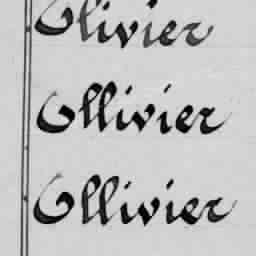 Olivier
Ollivier
Ollivier